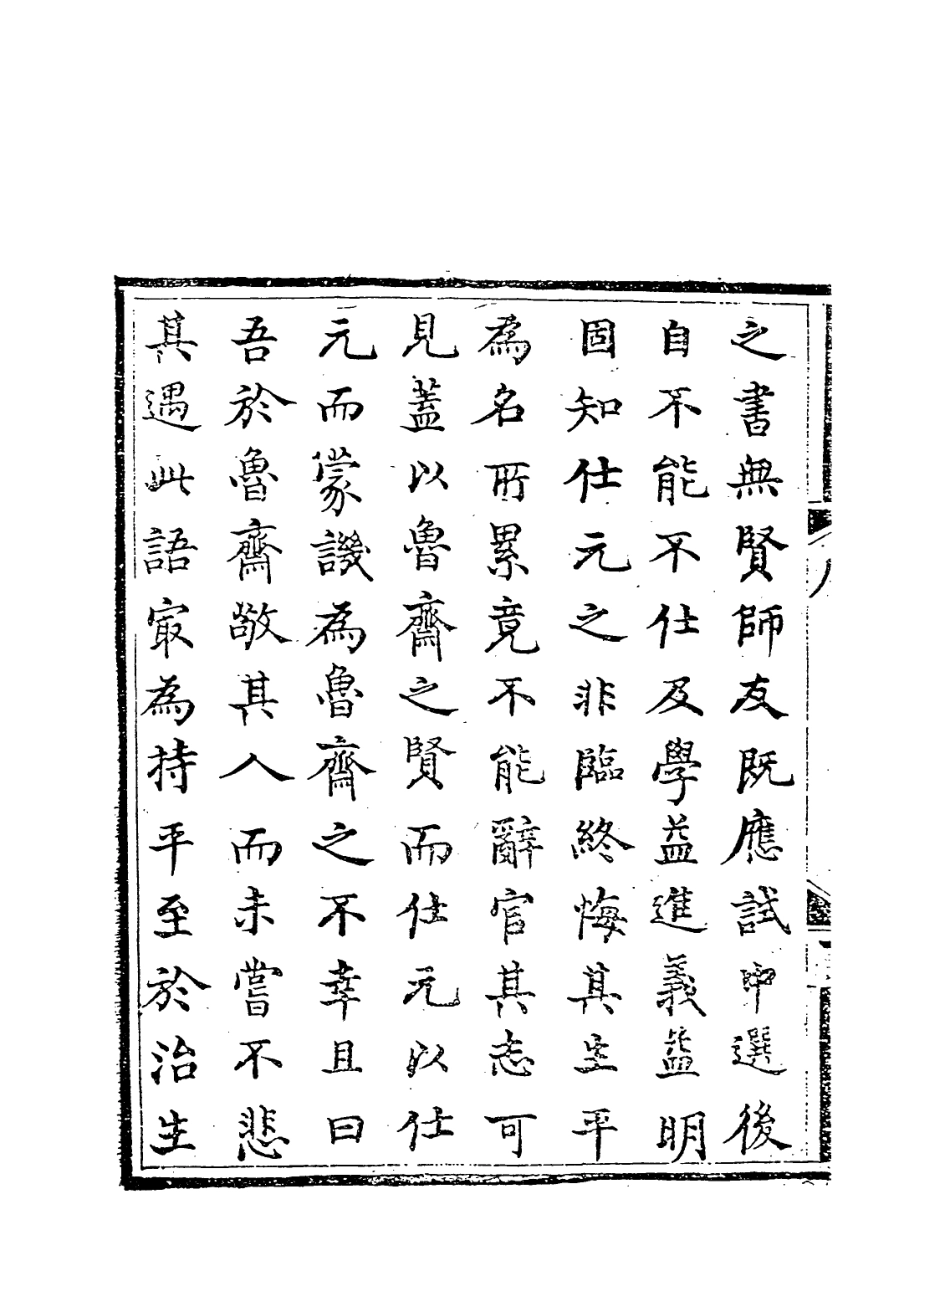 之書無賢師友既應試中選後
自不能不仕及學益進義益明
固知仕元之非臨終悔其生平
為名所累竟不能辭官其志可
見蓋以魯齋之賢而仕元以仕
元而蒙譏為魯齋之不幸且曰
吾於魯齋敬其人而未嘗不悲
其遇此語㝡為持平至於治生